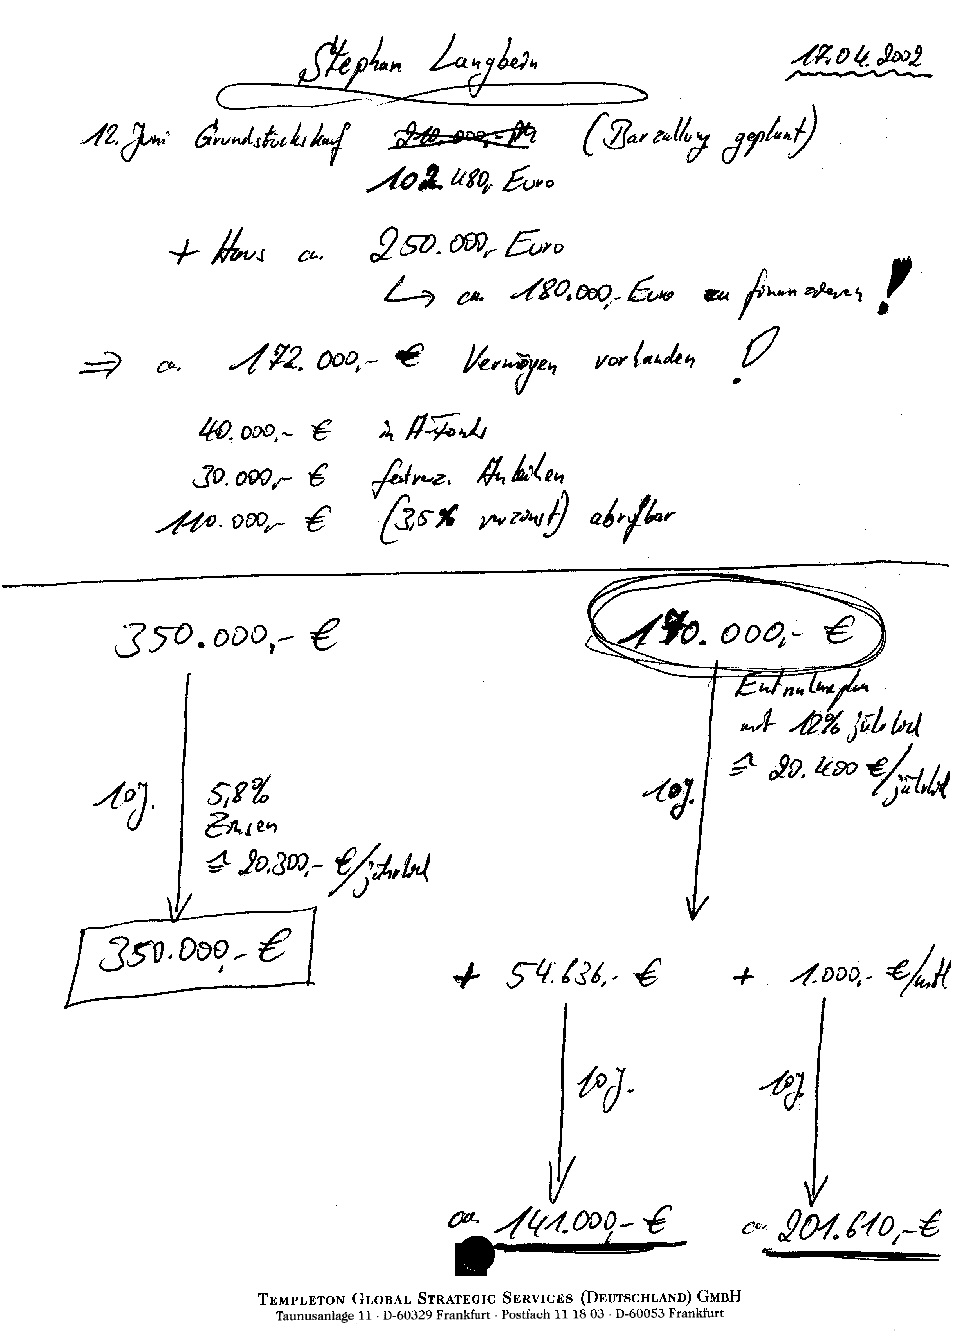 Stephan Langbein
17.04.2002
12. Juni Grundstückskauf 210.000,- DM (Barzahlung geplant)
102.480,- Euro
+ Haus ca. 250.000,- Euro
↳ ca. 180.000,- Euro zu finanzieren !
⇒ ca. 172.000,- € Vermögen vorhanden !
40.000,- € in A-Fonds
30.000,- € festverz. Anleihen
110.000,- € (3,5% verzinst) abrufbar
350.000,- €
170.000,- €
Entnahmeplan
mit 12% jährlich
≙ 20.400 €/jährlich
10 J.
10 J.
5,8%
Zinsen
≙ 20.300,- €/jährlich
350.000,- €
+ 54.636,- € + 1.000,- €/mtl
10 J.
10 J.
ca. 141.000,- € ca. 201.610,- €
TEMPLETON GLOBAL STRATEGIC SERVICES (DEUTSCHLAND) GMBH
Taunusanlage 11 · D-60329 Frankfurt · Postfach 11 18 03 · D-60053 Frankfurt